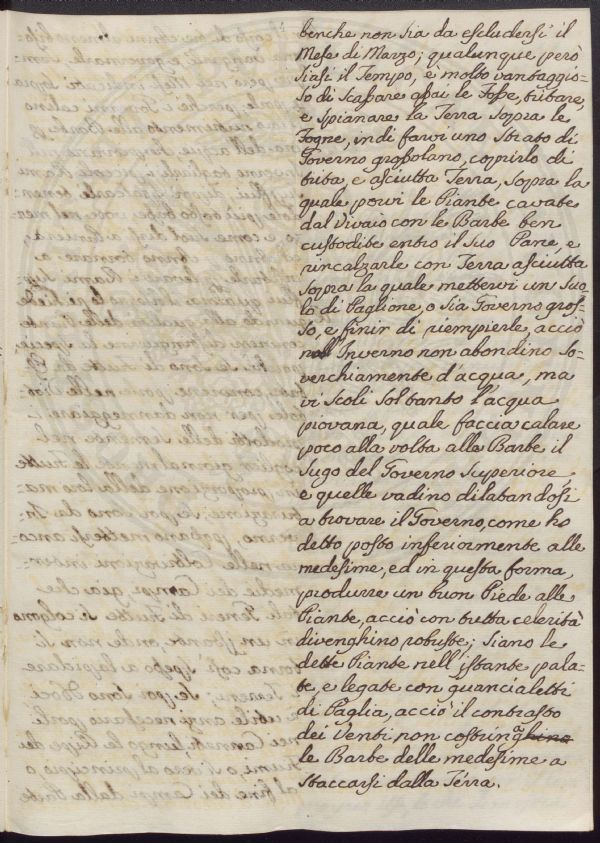 benche non sia da escludersi il
Mese di Marzo; qualunque però
siasi il Tempo, e molto vantaggio=
so di scassare assai le Fosse, tritare,
e spianare la Terra sopra le
Fogne, indi farvi uno strato di
Governo grossolano, coprirlo di
trita e asciutta Terra, sopra la
quale porvi le Piante cavate
dal Vivaio con le Barbe ben
custodite entro il suo Pane, e
rincalzarle con Terra asciutta
sopra la quale mettervi un suo=
lo di Paglione, o sia Governo gros=
so, e finir di riempierle, acciò
nell'Inverno non abondino so=
verchiamente d'acqua, ma
vi scoli soltanto l'acqua
piovana, quale faccia calare
poco alla volta alle Barbe il
sugo del Governo Superiore
e quelle vadino dilatandosi
a trovare il Governo, come ho
detto posto inferiormente alle
medesime, ed in questa forma,
produrre un buon Piede alle
Piante, acciò con tutta celerità
divenghino robuste; siano le
dette Piante nell'istante pala=
te, e legate con guancialetti
di Paglia, acciò il contrasto
dei Venti non costringa
le Barbe delle medesime a
staccarsi dalla Terra.